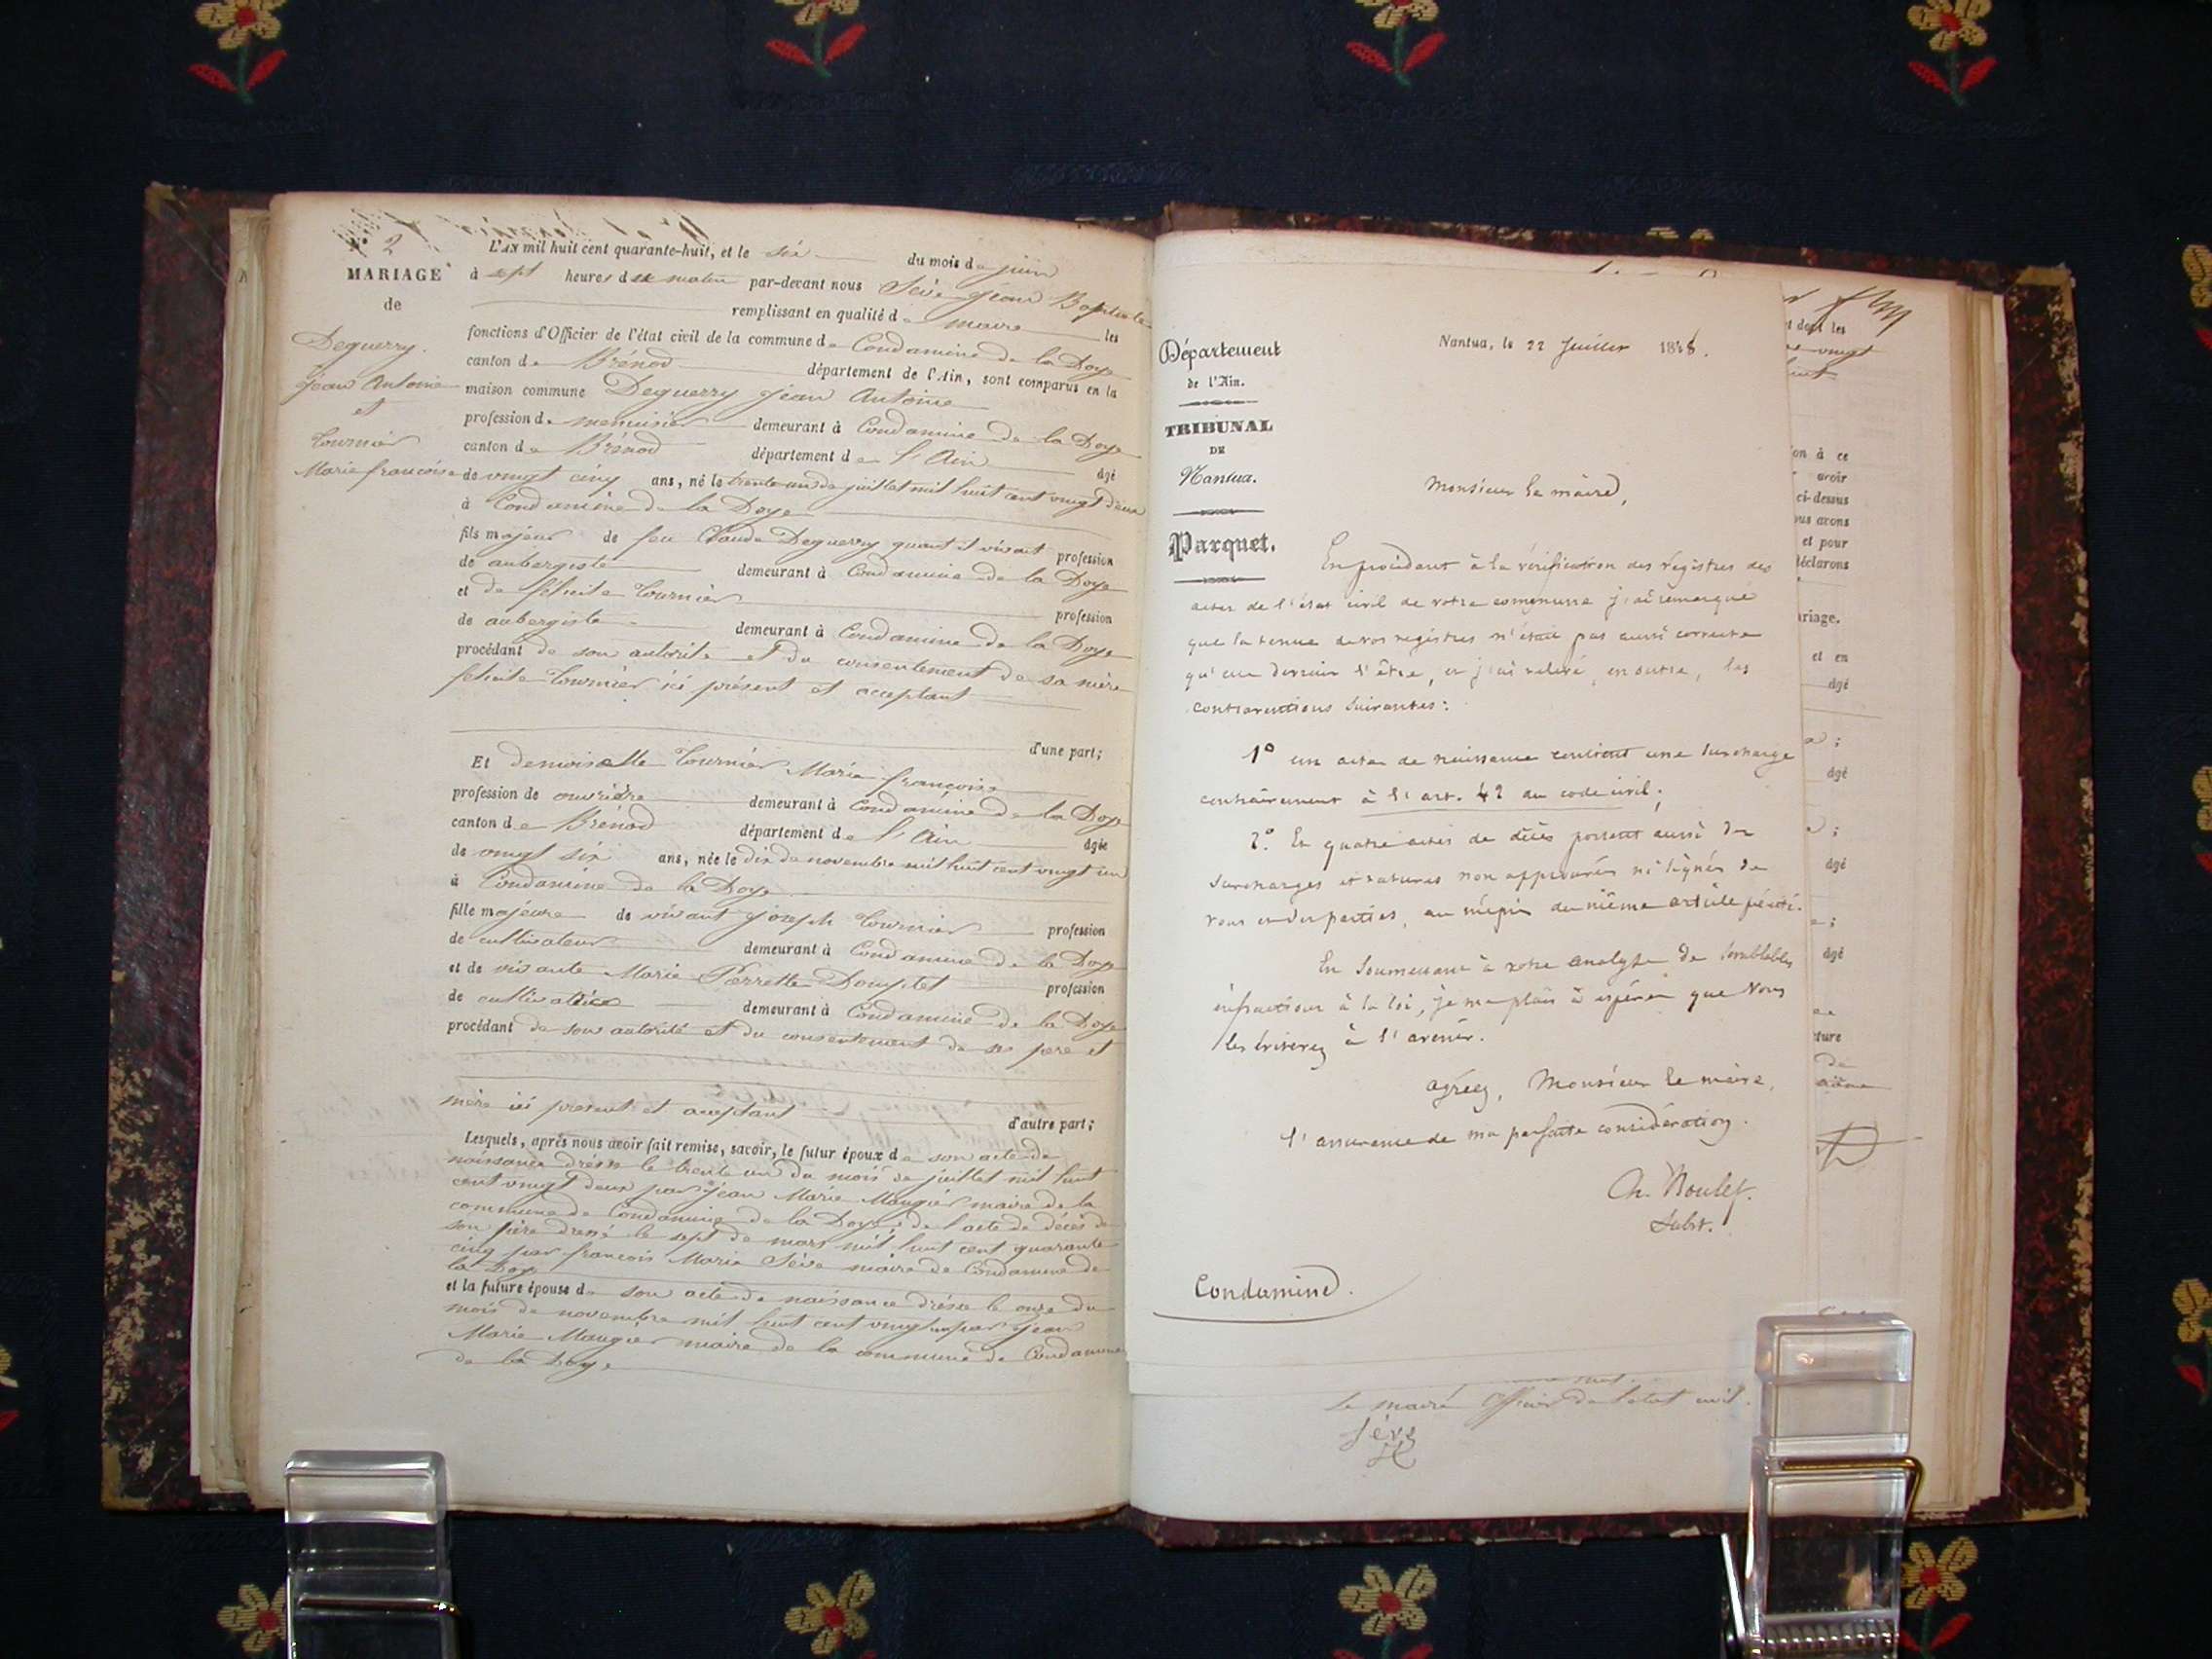 N° 2
MARIAGE
de
Deguerry
Jean Antoine
et
Tournier
Marie françoise
L'AN mil huit cent quarante-huit, et le six du mois de juin
à sept heures du matin par-devant nous Sève Jean Baptiste
remplissant en qualité de maire les
fonctions d'Officier de l'état civil de la commune de Condamine de la Doye
canton de Brénod département de l'Ain, sont comparus en la
maison commune Deguerry Jean Antoine
profession de menuisier demeurant à Condamine de la Doye
canton de Brénod département de l'Ain âgé
de vingt cinq ans, né le trente un de juillet mil huit cent vingt deux
à Condamine de la Doye
fils majeur de feu Claude Deguerry quant il vivait profession
de aubergiste demeurant à Condamine de la Doye
et de felicite Tournier profession
de aubergiste demeurant à Condamine de la Doye
procédant de son autorité et du consentement de sa mère
felicite Tournier ici présent et acceptant
d'une part;
Et demoiselle Tournier Marie françoise
profession de ouvrière demeurant à Condamine de la Doye
canton de Brénod département de l'Ain âgée
de vingt six ans, née le dix de novembre mil huit cent vingt un
à Condamine de la Doye
fille majeure de vivant Joseph Tournier profession
de cultivateur demeurant à Condamine de la Doye
et de vivante Marie Pierrette profession
de cultivatrice demeurant à Condamine de la Doye
procédant de son autorité et du consentement de ses pere et
mère ici present et aceptant d'autre part;
Lesquels, après nous avoir fait remise, savoir, le futur époux de son acte de
naissance le trente un du mois de juillet mil huit
cent vingt deux par Jean Marie Maugier maire de la
commune de Condamine de la Doye; de l'acte de décès de
son père dressé le sept de mars mil huit cent quarante
cinq par françois Marie Sève maire de Condamine de
la Doye
et la future épouse de son acte de naissance le onze du
mois de novembre mil huit cent vingt un par Jean
Marie Maugier maire de la commune de Condamine
de la Doye
Département
de l'Ain.
TRIBUNAL
DE
Nantua.
Parquet.
Nantua, le 22 Juillet 1848.
Monsieur le maire,
En procédant à la vérification des régistres des
actes de l'état civil de votre commune j'ai remarqué
que la tenue de vos registres n'était pas aussi correcte
qu'elle devrait l'être, et j'ai relevé, en outre, les
contraventions suivantes:
1° un acte de naissance contient une surcharge
contrairement à l'art. 42 du code civil;
2° Et quatre actes de décès portent aussi des
surcharges et ratures non approuvées ni signées de
vous et des parties, au mépris du même article précité.
En soumettant à votre analyse de semblables
infractions à la loi, je me plais à espérer que Vous
les éviterez à l'avenir.
agréez, Monsieur le maire,
l'assurance de ma parfaite considération.
Ch. Noulet.
Subst.
Condamine.
le maire Officier de l'état civil.
Sève
et dont les
vingt
ion à ce
avoir
ci-dessus
ous avons
et pour
déclarons
ariage.
et en
âgé
âgé
âgé
âgé
ture
de